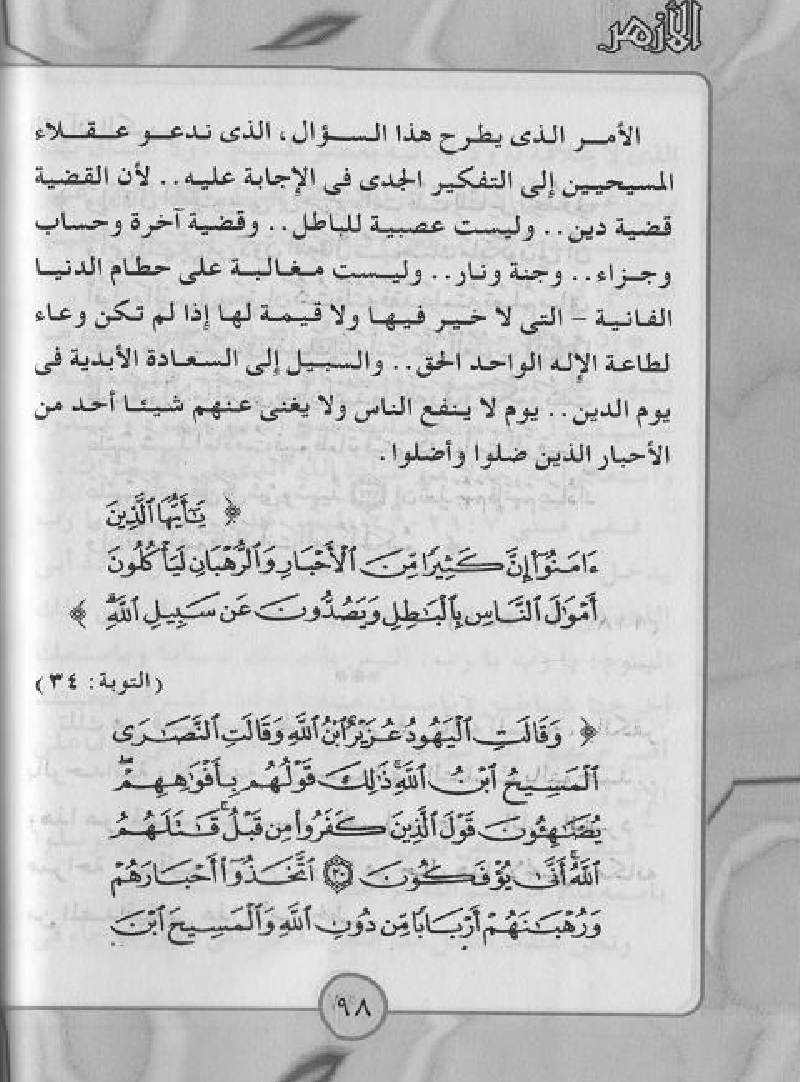 الأزهر
الأمر الذى يطرح هذا السؤال، الذى ندعو عقلاء
المسيحيين إلى التفكير الجدى فى الإجابة عليه.. لأن القضية
قضية دين.. وليست عصبية للباطل.. وقضية آخرة وحساب
وجزاء.. وجنة ونار.. وليست مغالبة على حطام الدنيا
الفانية - التى لا خير فيها ولا قيمة لها إذا لم تكن وعاء
لطاعة الإله الواحد الحق.. والسبيل إلى السعادة الأبدية فى
يوم الدين.. يوم لا ينفع الناس ولا يغنى عنهم شيئا أحد من
الأحبار الذين ضلوا وأضلوا.
﴿ يَٰٓأَيُّهَا ٱلَّذِينَ
ءَامَنُوٓا۟ إِنَّ كَثِيرًا مِّنَ ٱلْأَحْبَارِ وَٱلرُّهْبَانِ لَيَأْكُلُونَ
أَمْوَٰلَ ٱلنَّاسِ بِٱلْبَٰطِلِ وَيَصُدُّونَ عَن سَبِيلِ ٱللَّهِ ۗ ﴾
(التوبة: ٣٤)
﴿ وَقَالَتِ ٱلْيَهُودُ عُزَيْرٌ ٱبْنُ ٱللَّهِ وَقَالَتِ ٱلنَّصَٰرَى
ٱلْمَسِيحُ ٱبْنُ ٱللَّهِ ۖ ذَٰلِكَ قَوْلُهُم بِأَفْوَٰهِهِمْ ۖ
يُضَٰهِـُٔونَ قَوْلَ ٱلَّذِينَ كَفَرُوا۟ مِن قَبْلُ ۚ قَٰتَلَهُمُ
ٱللَّهُ ۚ أَنَّىٰ يُؤْفَكُونَ ٣٠ ٱتَّخَذُوٓا۟ أَحْبَارَهُمْ
وَرُهْبَٰنَهُمْ أَرْبَابًا مِّن دُونِ ٱللَّهِ وَٱلْمَسِيحَ ٱبْنَ
٩٨